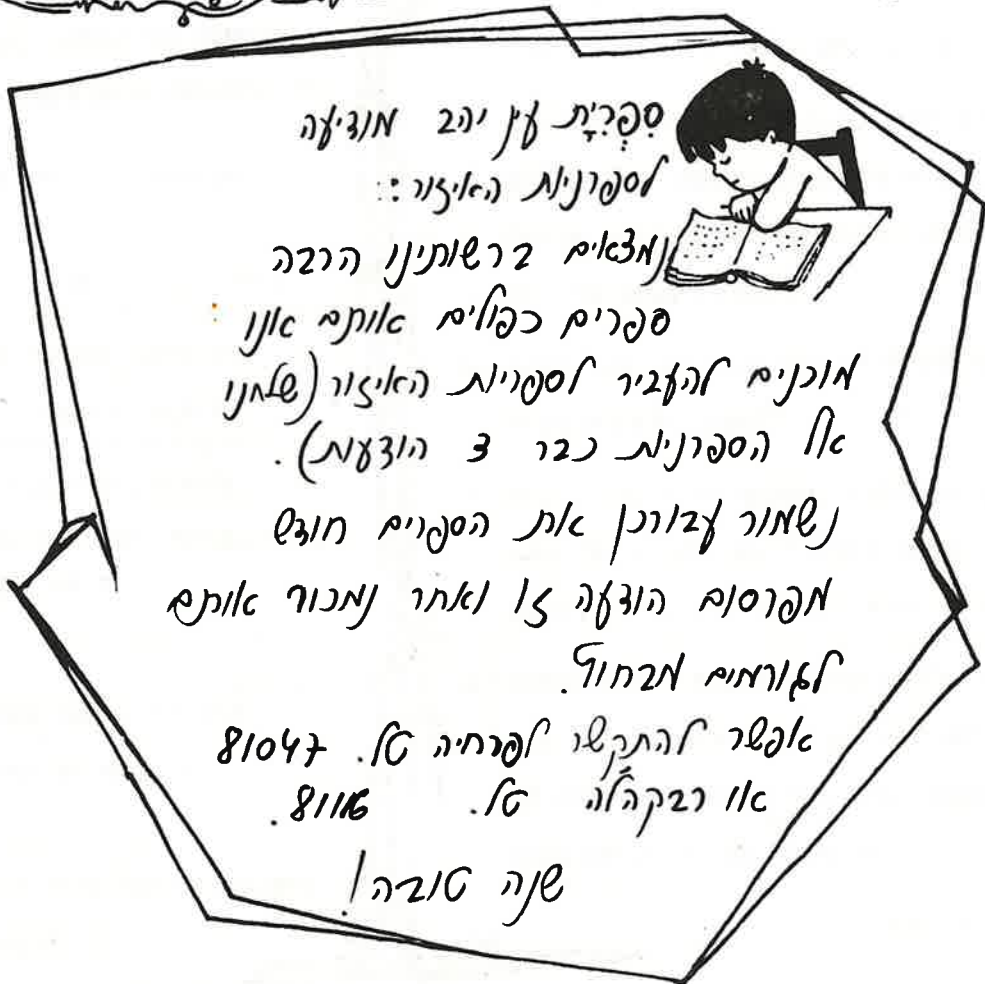 סִפְרִיַּת עין יהב מודיעה
לספרניות האיזור:
נמצאים ברשותינו הרבה
ספרים כפולים אותם אנו
מוכנים להעביר לספריות האיזור (שלחנו
אל הספרניות כבר 3 הודעות).
נשמור עבורכן את הספרים חודש
מפרסום הודעה זו ואחר נמכור אותם
לגורמים מבחוץ.
אפשר להתקשר לפרחיה טל. 81047
או רבקהלה טל.
שנה טובה!